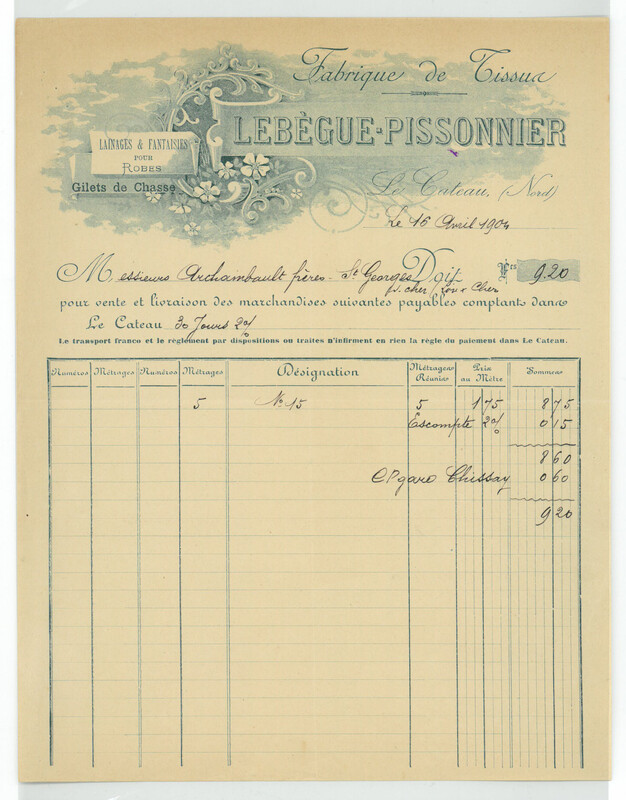 Fabrique de Tissus
LEBÈGUE-PISSONNIER
LAINAGES & FANTAISIES
POUR
ROBES
Gilets de Chasse
Le Cateau, (Nord)
Le 16 Avril 1904
Messieurs Archambault frères - St Georges Doit Frcs 9.20
s. cher / Loir & Cher
pour vente et livraison des marchandises suivantes payables comptant dans
Le Cateau 30 Jours 2%
Le transport franco et le règlement par dispositions ou traites n'infirment en rien la règle du paiement dans Le Cateau.
Numéros Métrages Numéros Métrages Désignation Métrages Réunis Prix au Mètre Sommes
5 No 15 5 1 75 8 75
Escompte 2% 0 15
8 60
gare Chissay 0 60
9 20